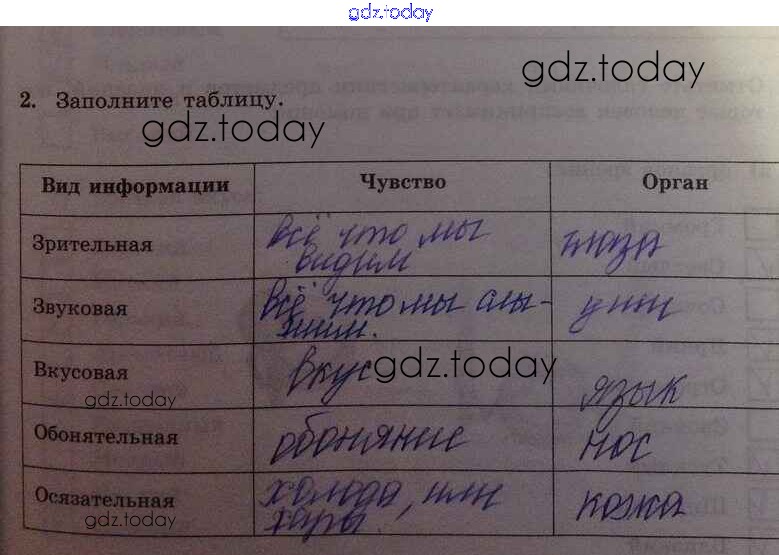 gdz.today
gdz.today
2. Заполните таблицу.
gdz.today
Вид информации Чувство Орган
Зрительная всё что мы видим глаза
Звуковая всё что мы слышим. уши
Вкусовая вкус gdz.today язык
gdz.today
Обонятельная обоняние нос
Осязательная холода, или жары. кожа
gdz.today